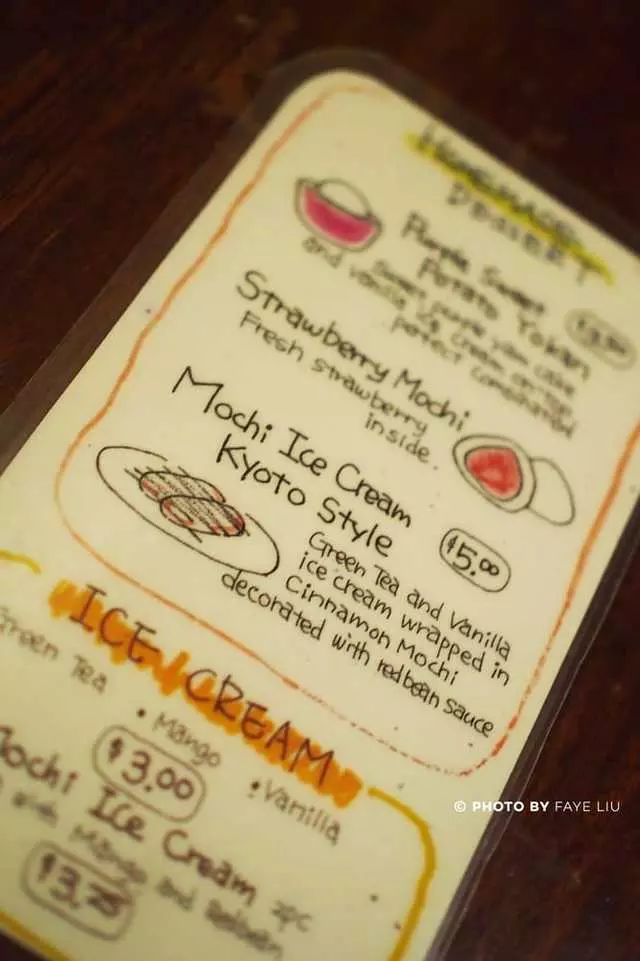 HOMEMADE
DESSERT
Purple Sweet
Potato Yokan
Sweet purple yam cake
and vanilla ice cream on top
perfect combination
Strawberry Mochi
Fresh strawberry
inside.
Mochi Ice Cream
Kyoto Style
$5.00
Green Tea and Vanilla
ice cream wrapped in
Cinnamon Mochi
decorated with redbean sauce
ICE CREAM
Green Tea
• Mango
• Vanilla
$3.00
Mochi Ice Cream 2pc
with Mango and Redbean
$3.25
© PHOTO BY FAYE LIU